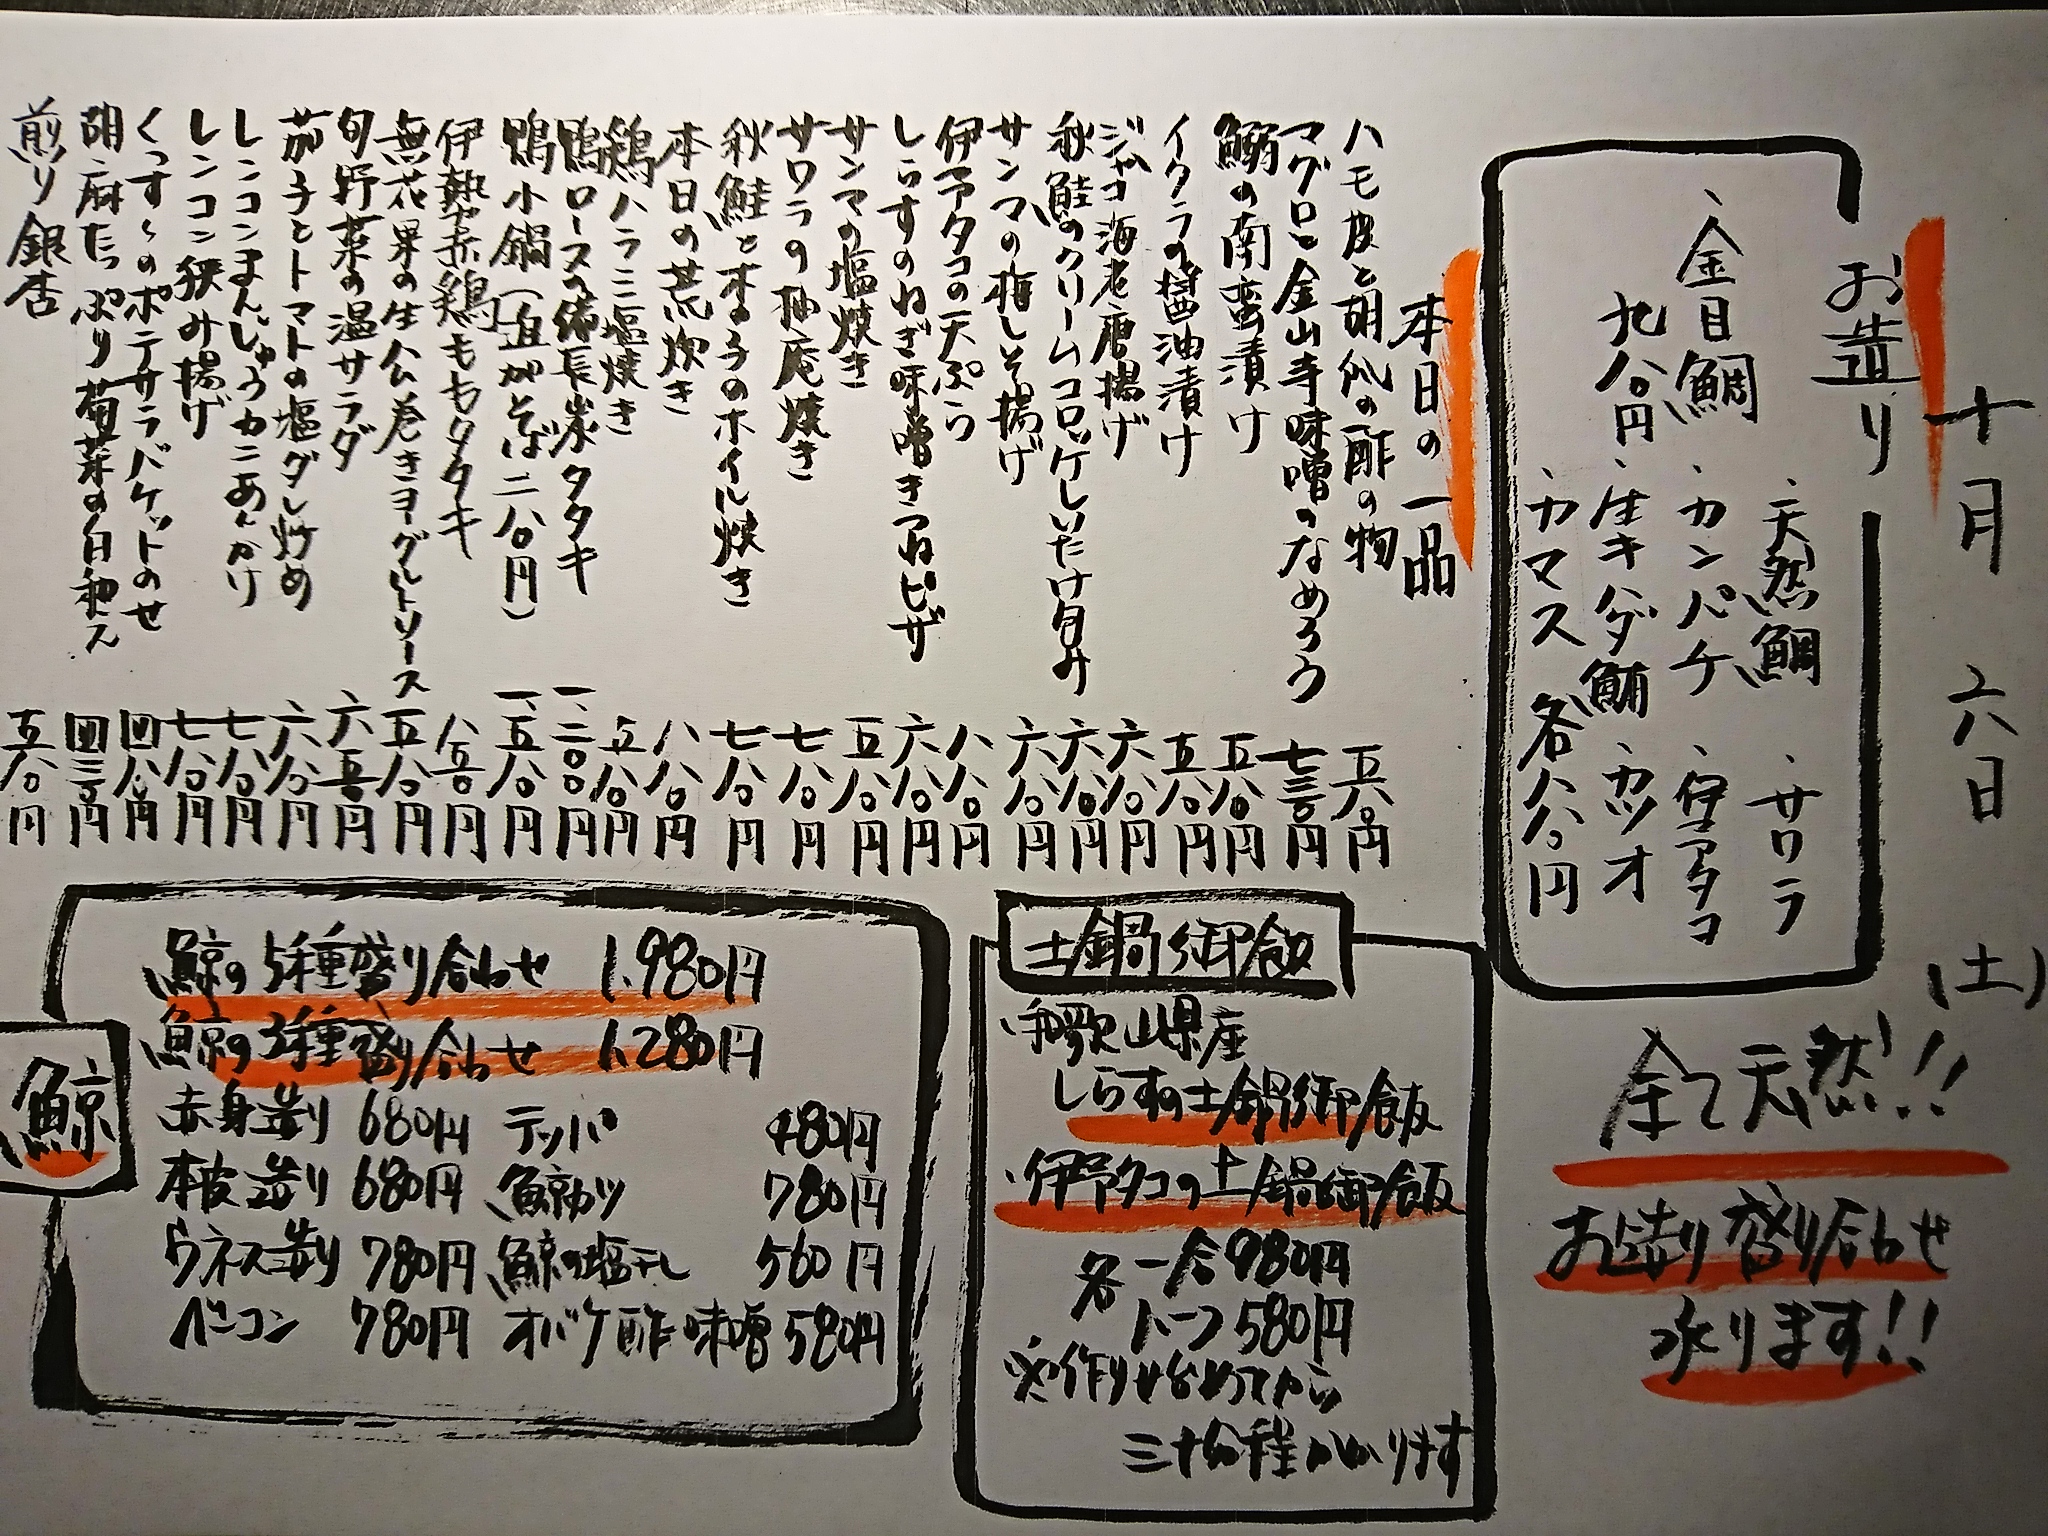 十月六日(土)
お造り
、天然鯛 、サワラ
、カンパチ 、伊予タコ
、金目鯛 九八〇円
、生キハダ鮪 、カツオ
、カマス 各八八〇円
全て天然!!
お造り盛り合わせ
承ります!!
本日の一品
ハモ皮と胡瓜の酢の物 五八〇円
マグロと金山寺味噌のなめろう 七三〇円
鰯の南蛮漬け 五八〇円
イクラの醤油漬け 五八〇円
ジャコ海老唐揚げ 六八〇円
秋鮭のクリームコロッケしいたけ包み 六八〇円
サンマの梅しそ揚げ 六八〇円
伊予タコの天ぷら 八八〇円
しらすのねぎ味噌きつねピザ 六八〇円
サンマの塩焼き 五八〇円
サワラの柚庵焼き 七八〇円
秋鮭ときのこのホイル焼き 七八〇円
本日の荒炊き 八八〇円
鶏ハラミ塩焼き 五八〇円
鴨ロース備長炭タタキ 一、二〇〇円
鴨小鍋(追がそば二八〇円) 一、五八〇円
伊勢赤鶏ももタタキ 八五〇円
無花果の生ハム巻きヨーグルトソース 五八〇円
旬野菜の温サラダ 六五〇円
茄子とトマトの塩ダレ炒め 六八〇円
レンコンまんじゅうカニあんかけ 七八〇円
レンコン挟み揚げ 七八〇円
くっすんのポテサラバケットのせ 四八〇円
胡麻たっぷり菊菜の白和え 四三〇円
煎り銀杏 五八〇円
土鍋御飯
和歌山県産
しらすの土鍋御飯
・伊予タコの土鍋御飯
各一合980円
ハーフ580円
※作り始めてから
三十分程かかります
鯨
鯨の5種盛り合わせ 1.980円
鯨の3種盛り合わせ 1.280円
赤身造り 680円 テッパ 480円
本皮造り 680円 鯨カツ 780円
ウネス造り 780円 鯨の塩干し 560円
ベーコン 780円 オバケ酢味噌 580円